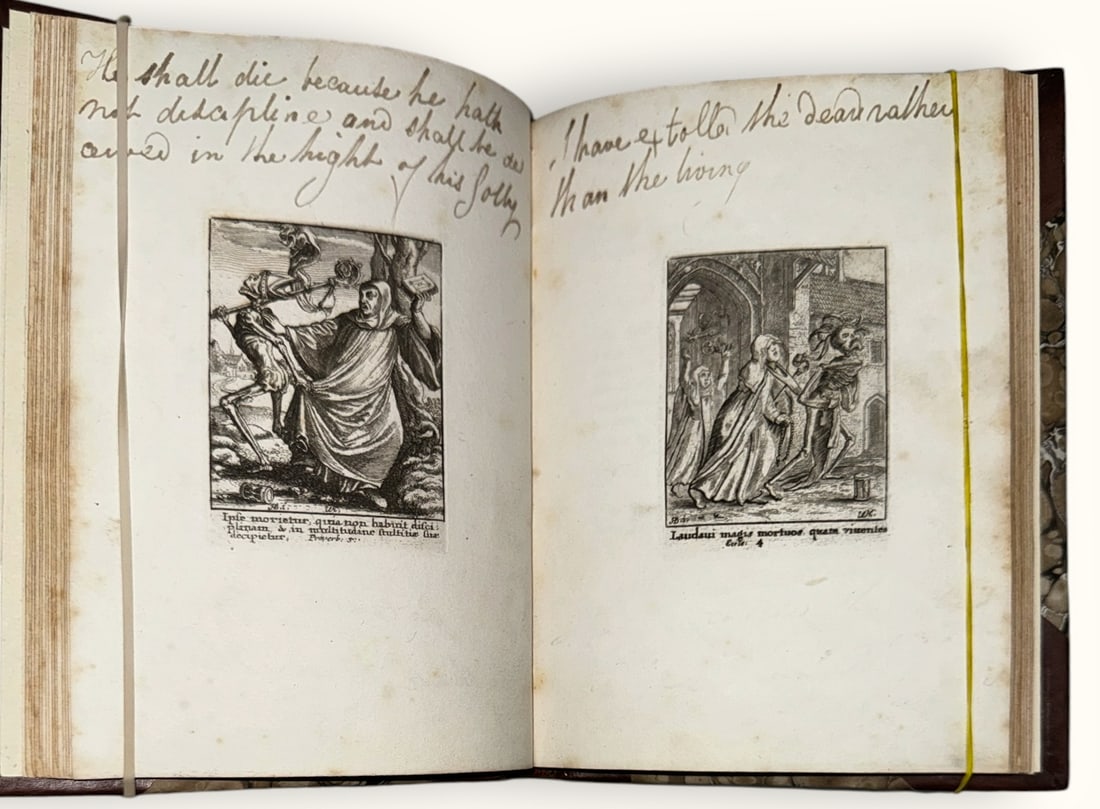 He shall die because he hath
not discipline and shall be de
ceived in the hight of his folly
Ipse morietur, quia non habuit disci:
plinam & in multitudine stultitiæ suæ
decipietur, Proverb. 5.
I have extolld the dead rather
than the living
Laudaui magis mortuos quam viuentes
Eccle: 4